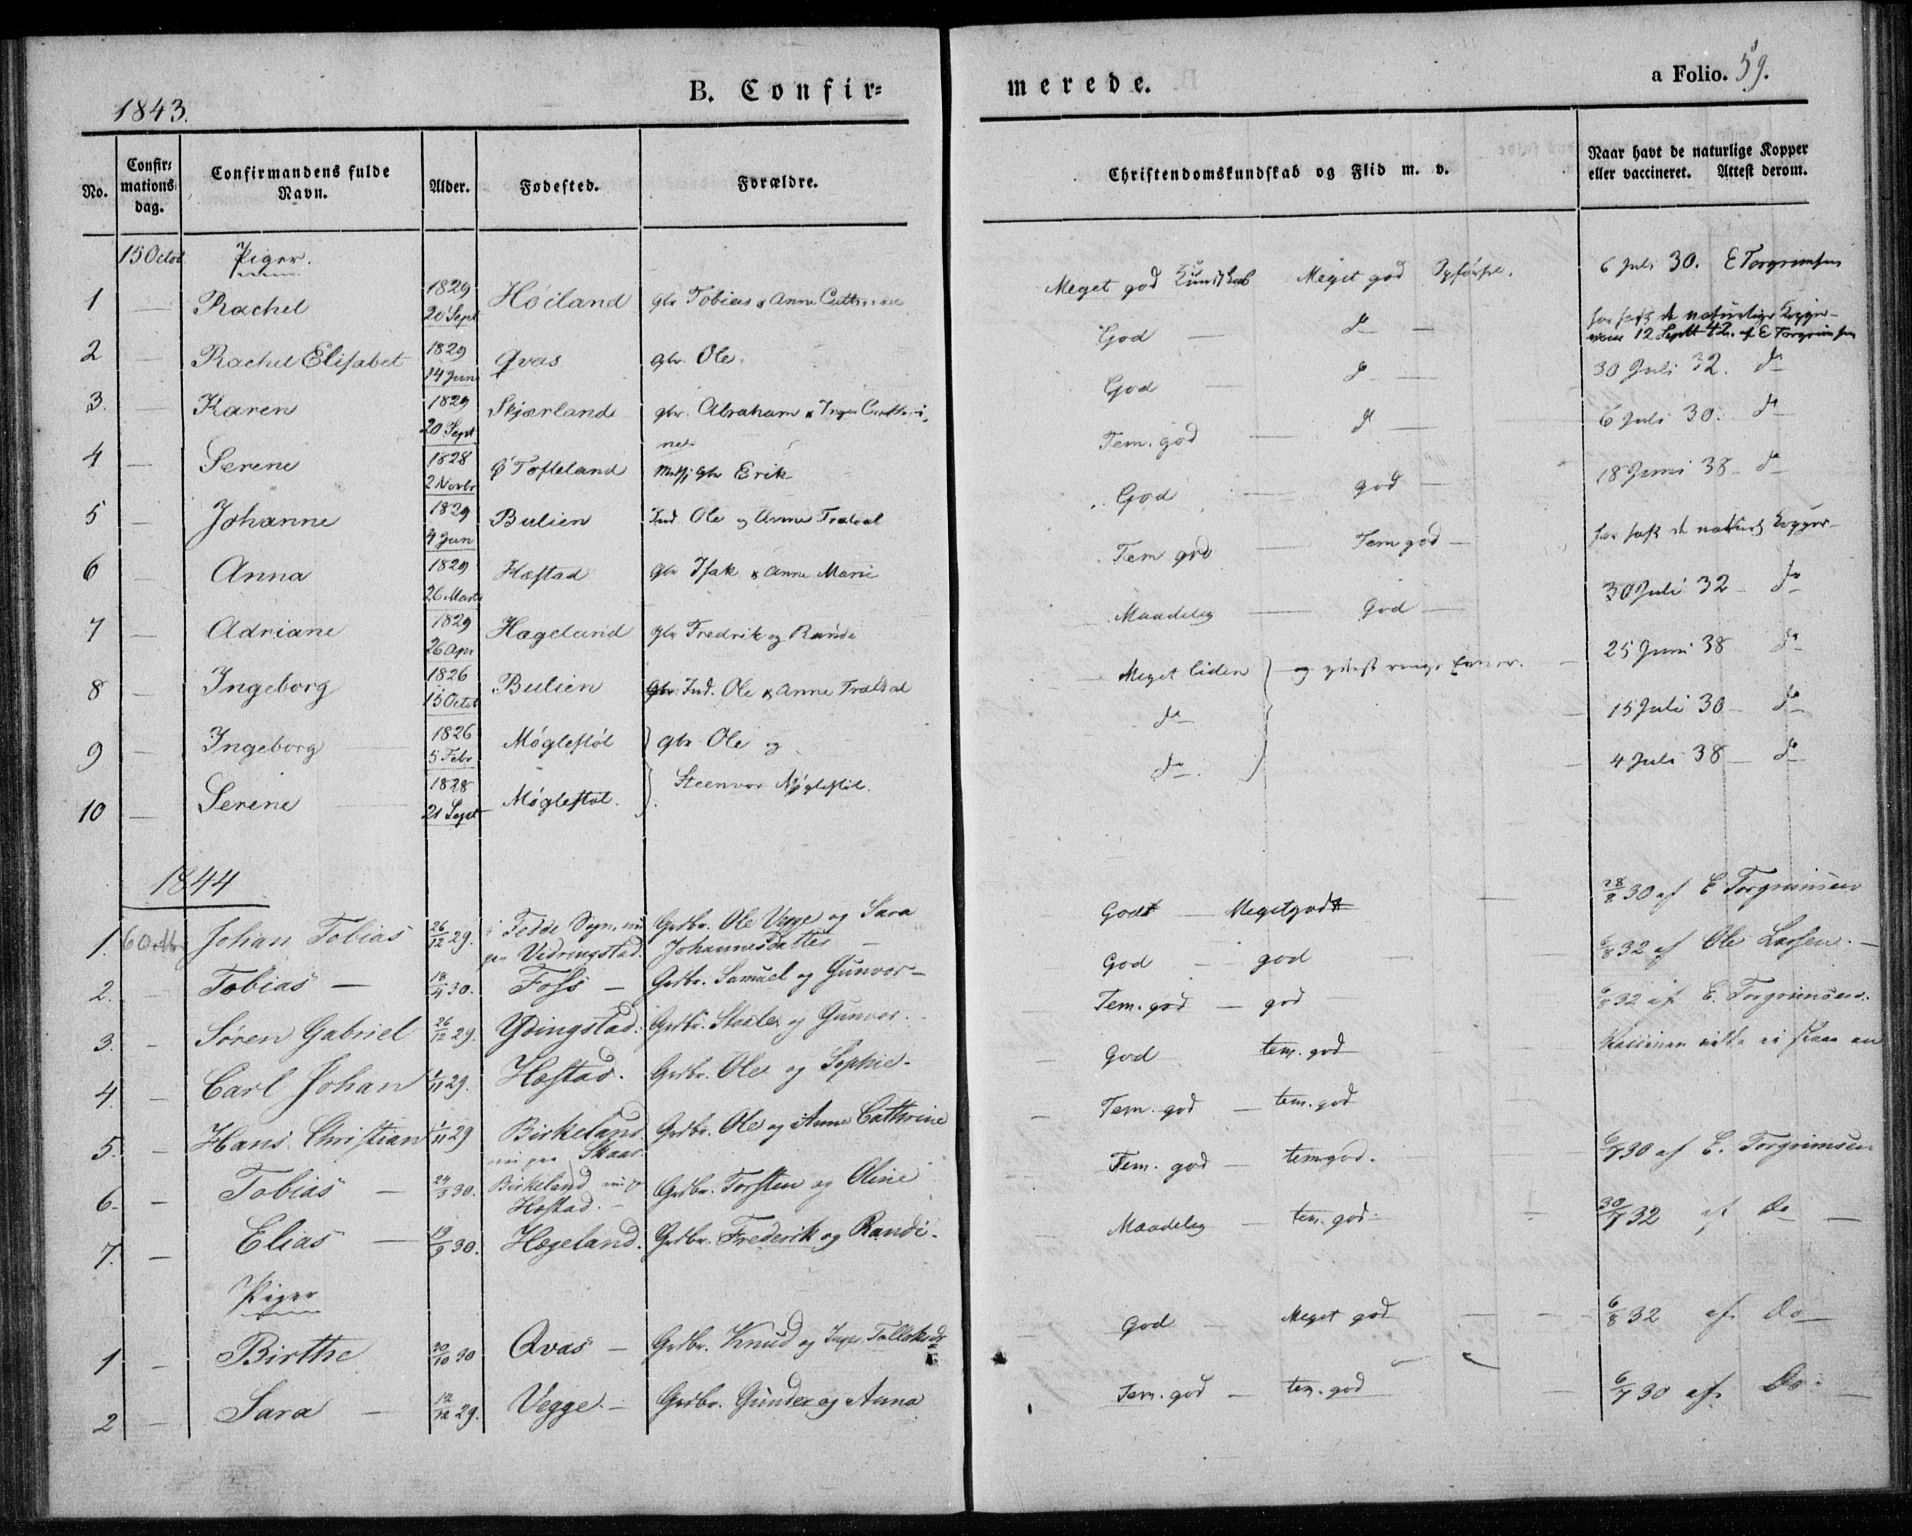 1843.
B. Confir=
merede.
a Folio. 59.
No.
Confir=
mations
dag.
Confirmandens fulde
Navn.
Alder.
Fødested.
Forældre.
Christendomskundskab og Flid m. v.
Naar havt de naturlige Kopper
eller vaccineret. Attest derom.
15 Octob Piger.
1 — Rachel 1829 20 Sept Høiland gbr Tobias & Anne Cathrine Meget god Kundskab Meget god Opførsel. 6 Juli 30. E Torgrimsen
2 — Rachel Elisabet 1829 14 Juni Qvas gbr. Ole. God — do — har havt de naturlige Kopper
12 Septb 42. af E Torgrimsen
3. — Karen 1829 20 Sept Skjærlande gbr. Abraham & Inger Cathri-
ne. God — do — 30 Juli 32. do
4 — Serene 1828 2 Novbr Ø Tofteland gbr Erik Tem. god — do — 6 Juli 30. do
5 — Johanne 1829 4 Jun Bulien Ind Ole og Anne Trældal God — god — 18 Juni 38 — do
6 — Anna 1829 26 Marts Hæstad gbr Isak & Anne Marie Tem god — Tem god — har havt de naturl Kopper
7 — Adriane 1829 26 Apr Hageland gbr Fredrik og Rande Maadelig — God — 30 Juli 32 — do
8 — Ingeborg 1826 15 Octob Bulien gbr. Ind. Ole & Anne Trældal Meget liden } og yderst ringe Evner. — 25 Juni 38 do
9 — Ingeborg 1826 5 Febr Møglestøl } gbr Ole og do 15 Juli 30 — do
10 — Serine 1828 21 Sept Møglestøl. } Steenvor Møglestøl. do 4 Juli 38 — do
1844
1. 6 Octb Johan Tobias 26/12 29. i Fedde Sogn, nu
paa Vedringstad. Grdbr. Ole Vegge og Sara
Johannesdatter — Godt — Megetgodt — 28/8 30 af E Torgrimsen
2. — Tobias — /4 30. Foss — Grdbr. Samuel og Gunvor — God — god — 6/8 32 af Ole Larsen. —
3. — Søren Gabriel 26/12 29. Ydingstad. Grdbr. og Gunvor. Tem. god — god 6/8 32 af E. Torgrimsen.
4. — Carl Johan 1/11 29. Hæstad. Grdbr. Ole og Sophie. God tem. god Vaccinen vilde ei slaae an
5. — Hans Christian 1/11 29 Birkeland.
nu paa Skaar. Grdbr. Ole og Anne Cathrine Tem. god — tem. god
6. — Tobias — 24/3 30. Birkeland nu p
Hæstad. — Grdbr. Torsten og Oline Tem. god — tem god. 6/7 30 af E. Torgrimsen
7. — Elias — 19/9 30. Hægeland. Grdbr. Frederik og Randi. Maadelig — tem. god. 30/7 32 af Do —
Piger
1 — Birthe 30/10 30 Qvas — Grdbr. Knud og Inger Tolleksdr God — Meget god 6/8 32 af Do
2 — Sara — /12 29. Vegge. — Grdbr. Gunder og Anna Tem. god — tem. god 6/7 30 af Do. —